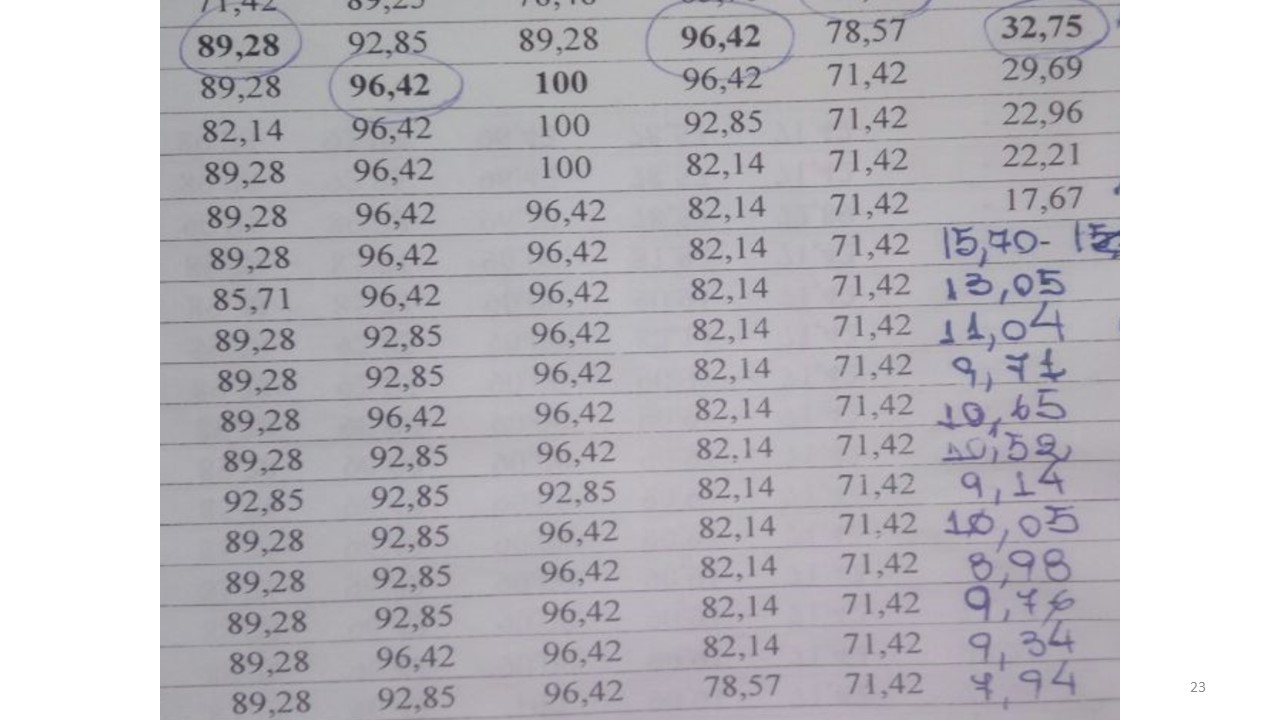 89,28 92,85 89,28 96,42 78,57 32,75
89,28 96,42 100 96,42 71,42 29,69
82,14 96,42 100 92,85 71,42 22,96
89,28 96,42 100 82,14 71,42 22,21
89,28 96,42 96,42 82,14 71,42 17,67
89,28 96,42 96,42 82,14 71,42 15,70-
85,71 96,42 96,42 82,14 71,42 13,05
89,28 92,85 96,42 82,14 71,42 11,04
89,28 92,85 96,42 82,14 71,42 9,71
89,28 96,42 96,42 82,14 71,42 10,65
89,28 92,85 96,42 82,14 71,42 10,52
92,85 92,85 92,85 82,14 71,42 9,14
89,28 92,85 96,42 82,14 71,42 10,05
89,28 92,85 96,42 82,14 71,42 8,98
89,28 92,85 96,42 82,14 71,42 9,76
89,28 96,42 96,42 82,14 71,42 9,34
89,28 92,85 96,42 78,57 71,42 7,94
23